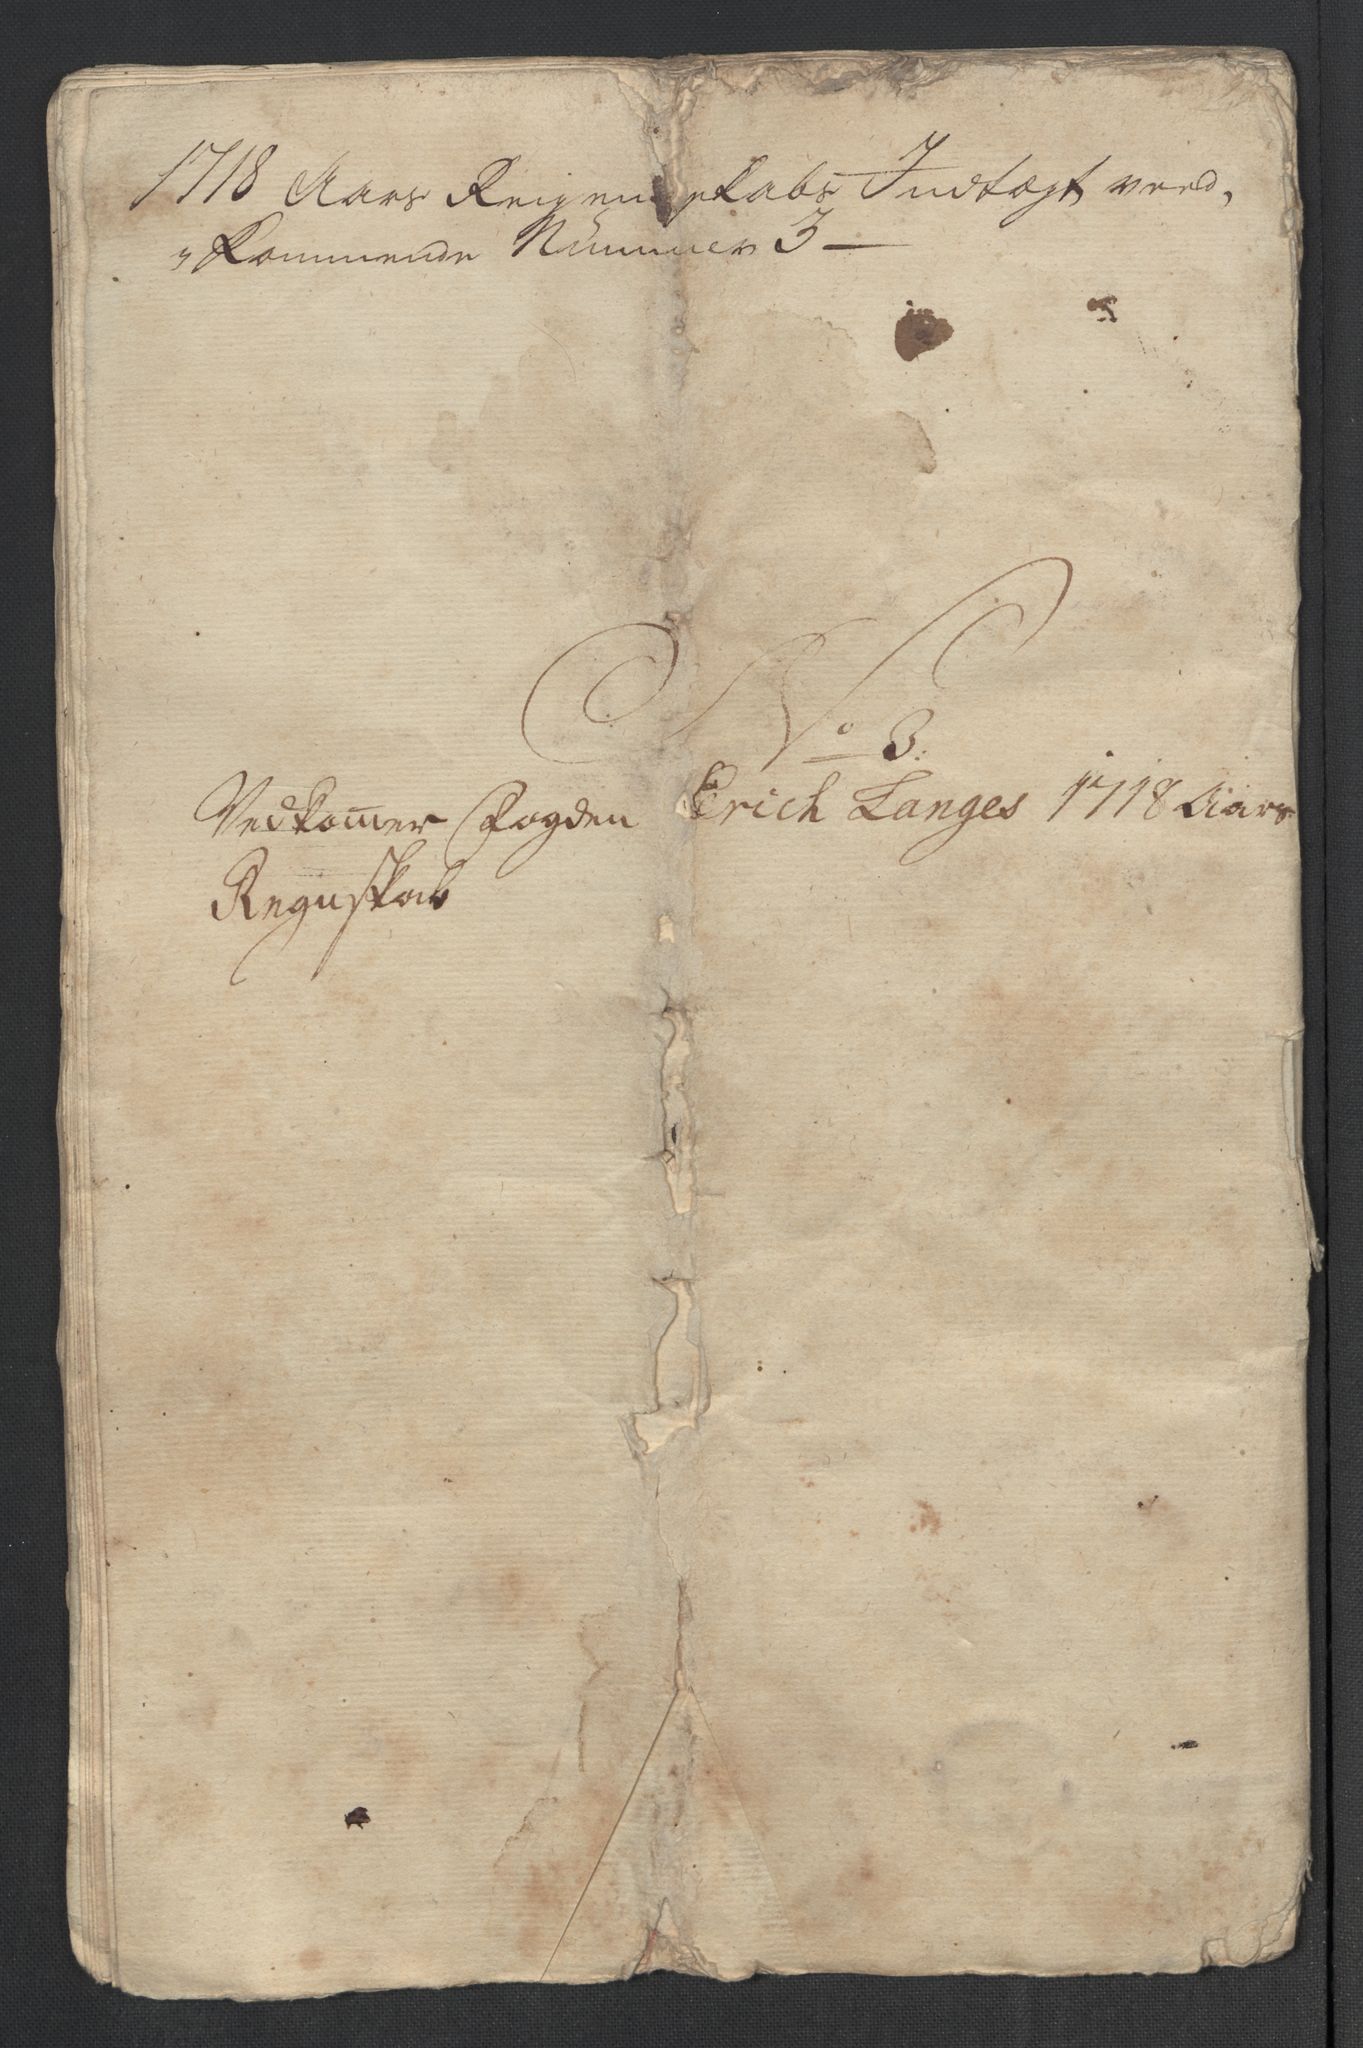 1718 Aars Reigenskabs Indtægt ved,
„kommende Nummer 3 —
No 3.
Vedkom̄er Fogden Erich Langes 1718 Aars
Regnskab